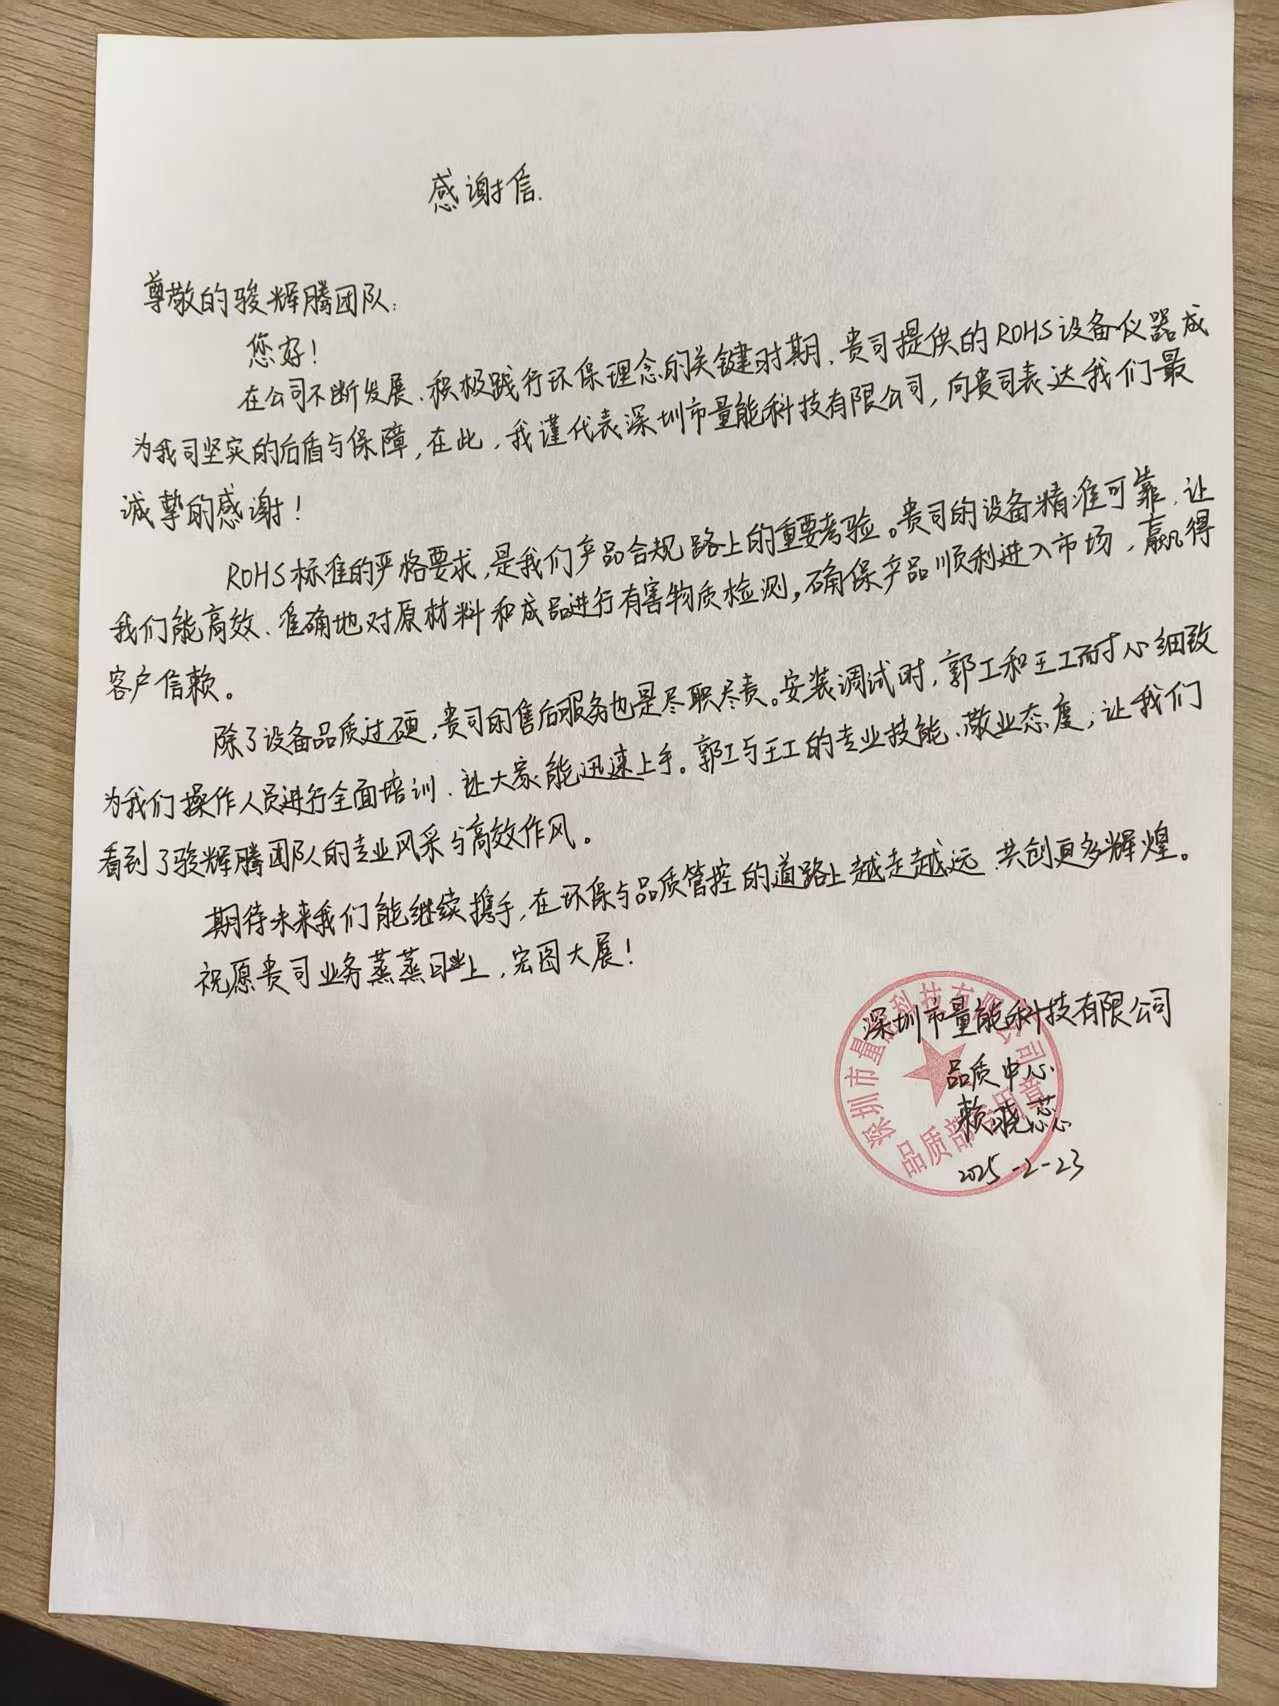 感谢信.
尊敬的骏辉腾团队:
您好!
在公司不断发展、积极践行环保理念的关键时期,贵司提供的ROHS设备仪器成
为我司坚实的后盾与保障,在此,我谨代表深圳市量能科技有限公司,向贵司表达我们最
诚挚的感谢!
ROHS标准的严格要求,是我们产品合规路上的重要考验。贵司的设备精准可靠,让
我们能高效、准确地对原材料和成品进行有害物质检测,确保产品顺利进入市场,赢得
客户信赖。
除了设备品质过硬,贵司的售后服务也是尽职尽责。安装调试时,郭工和王工耐心细致
为我们操作人员进行全面培训,让大家能迅速上手。郭工与王工的专业技能、敬业态度,让我们
看到了骏辉腾团队的专业风采与高效作风。
期待未来我们能继续携手,在环保与品质管控的道路上越走越远,共创更多辉煌。
祝愿贵司业务蒸蒸日业上,宏图大展!
深圳市量能科技有限公司
品质中心
赖晓蕊
2025-2-23
深圳市量能科技有限公司
品质部专用章